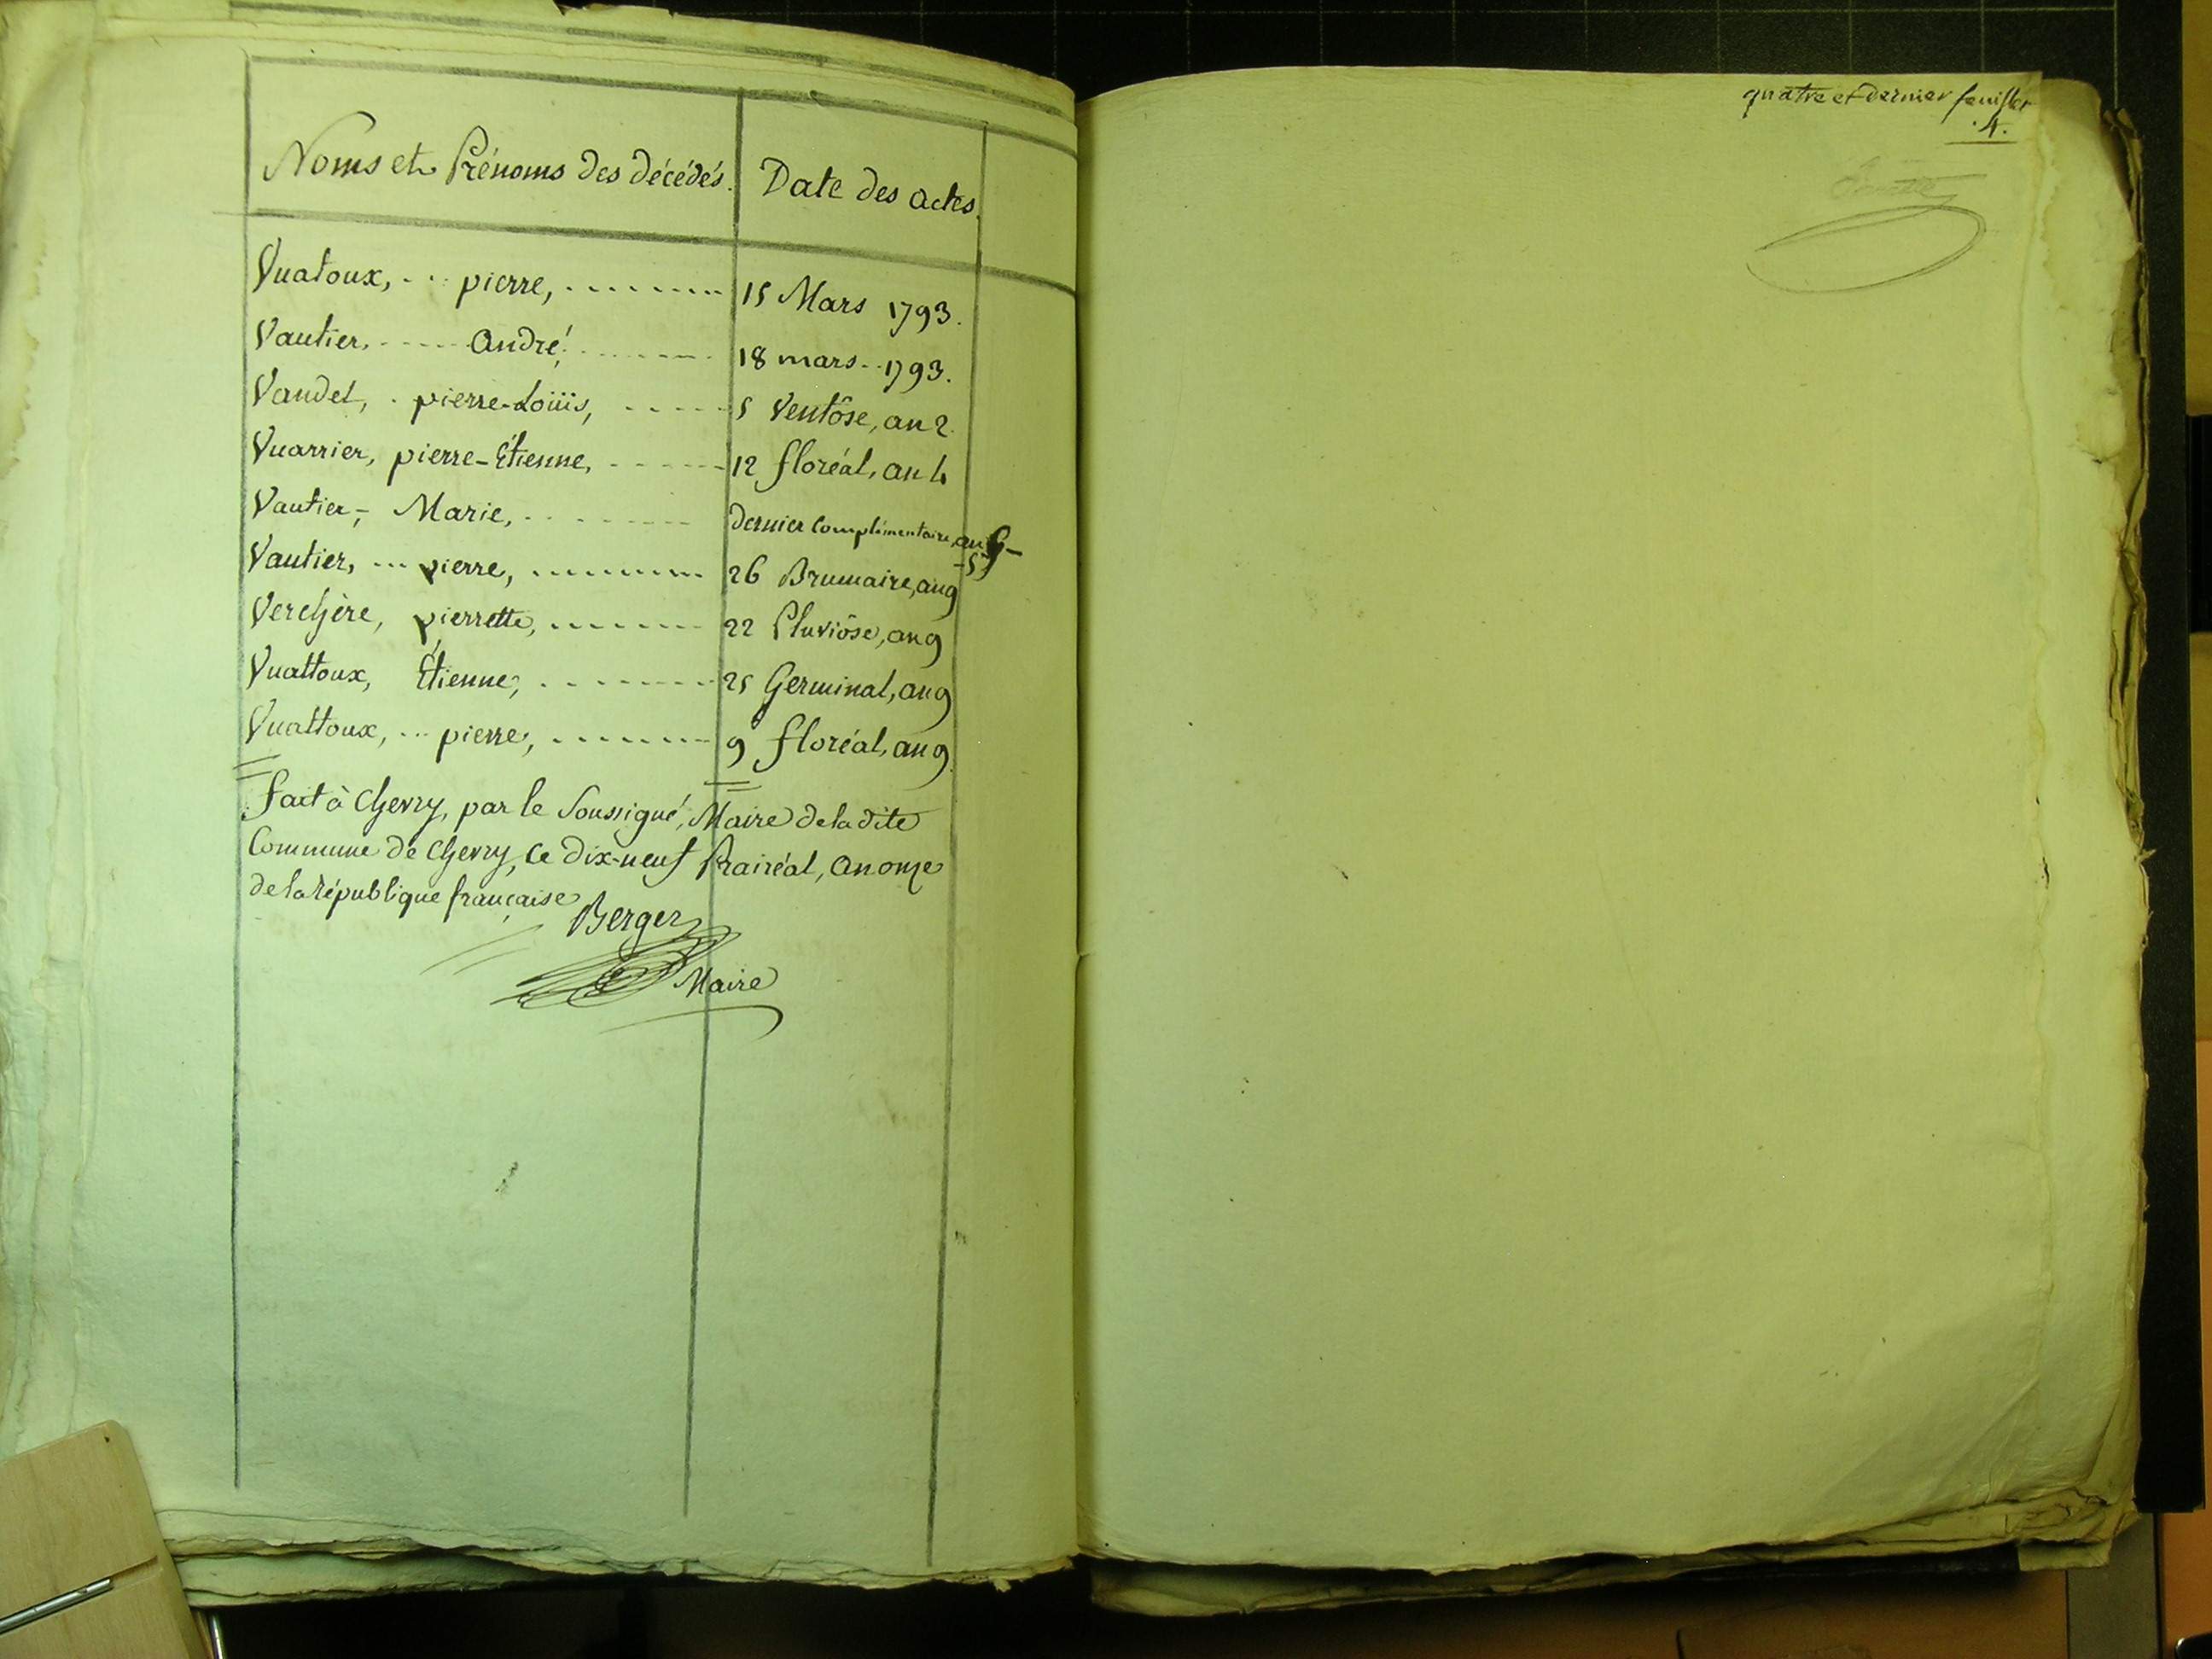 Noms et Prénoms des décédés. Date des actes.
Vuatoux, ... pierre, ........ 15 Mars 1793.
Vautier, ..... André, ........ 18 mars .. 1793.
Vaudet, . pierre-Loüis, ..... 5 Ventôse, an 2.
Vuarrier, pierre-Étienne, ...... 12 floréal, an 4
Vautier, Marie, ........ dernier Complémentaire, an
5
Vautier, ... pierre, ........ 26 Brumaire, an 9
Verchère, pierrette, ....... 22 Pluviôse, an 9
Vuattoux, Étienne, ........ 25 Germinal, an 9
Vuattoux, ... pierre, ........ 9 floréal, an 9.
fait à Chevry, par le Soussigné, Maire de la dite
Commune de Chevry, Ce dix-neuf Prairéal, an onze
de la république française
Berger
Maire
quatre et dernier feuillet
.4.